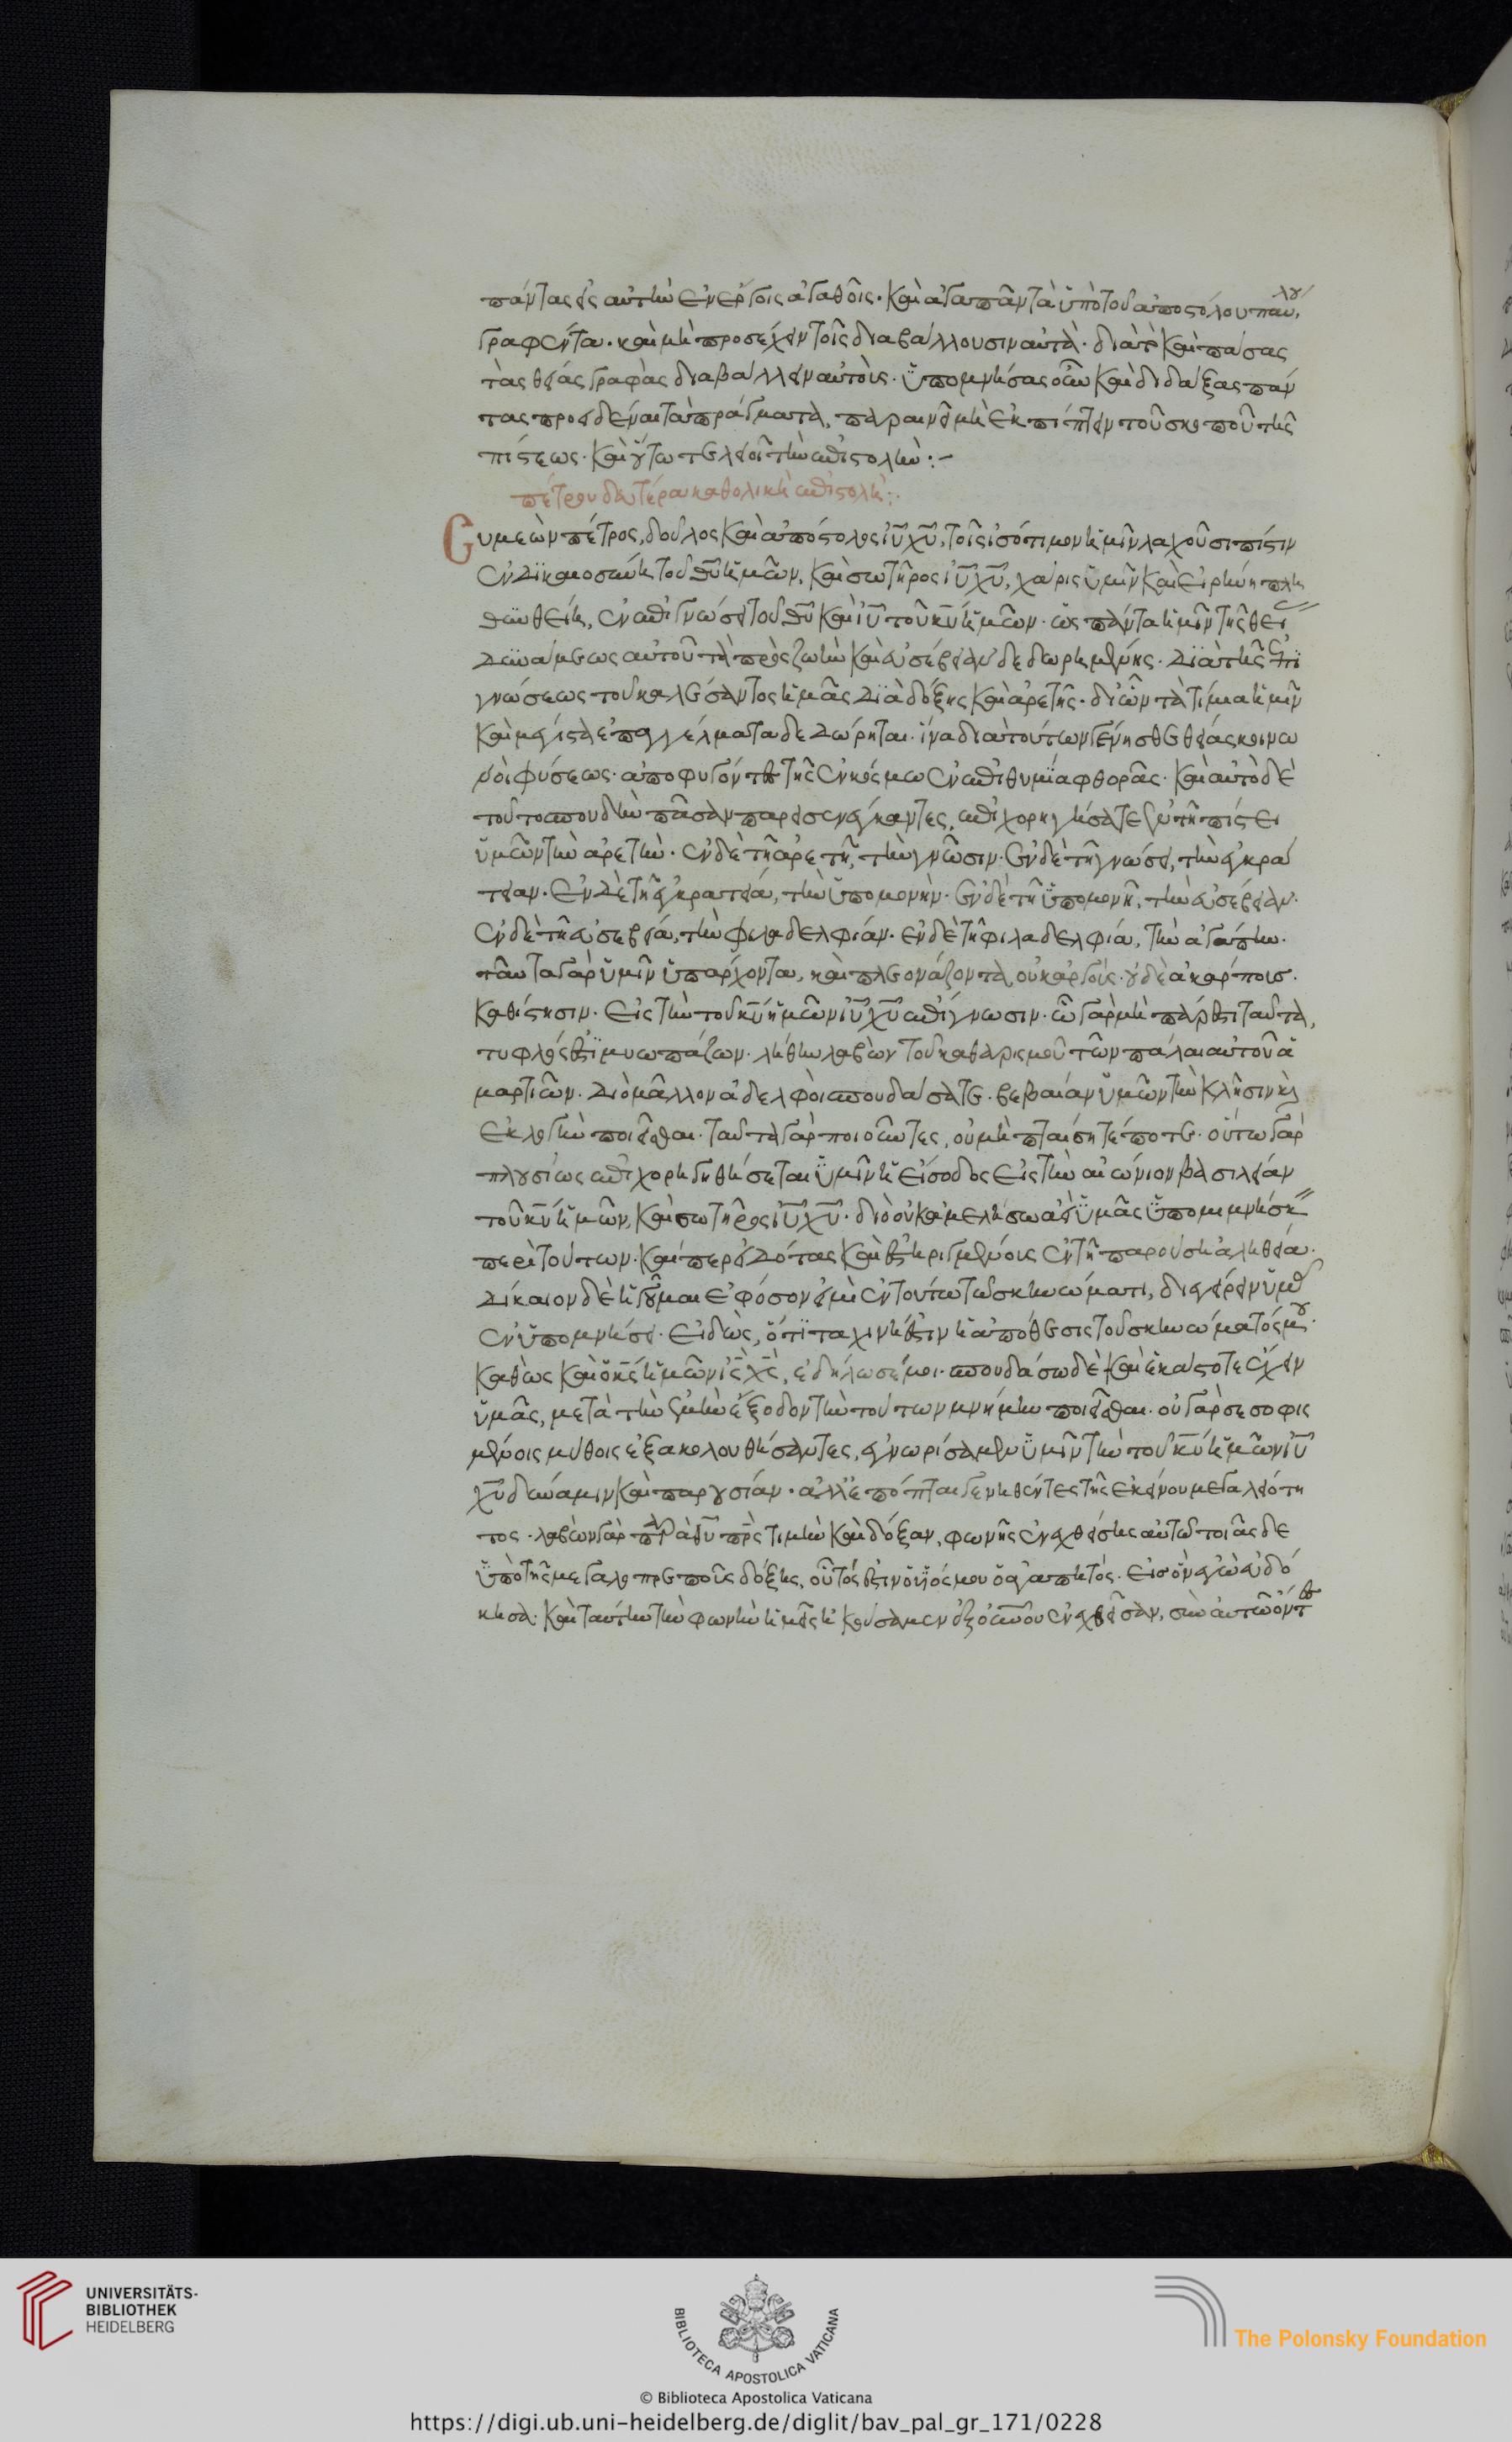 πάντας εἶς αὐτὴν ἐν ἔργοις ἀγαθοῖς· καὶ ἀγαπᾶν τὰ ὑπὸ τοῦ ἀποστόλου παύλου
γραφέντα· καὶ μὴ προσέχειν τοῖς διαβάλλουσιν αὐτὰ· διὰ τὸ καὶ πάσας
τὰς θείας γραφὰς διαβάλλειν αὐτοὺς· ὑπομνήσας οὖν καὶ διδάξας πάν
τας προειδέναι τὰ πράγματα, παραινεῖ μὴ ἐκπίπτειν τοῦ σκοποῦ τῆς
πίστεως· καὶ οὕτω τελειοῖ τὴν ἐπιστολὴν:-
πέτρου δευτέρα καθολικὴ ἐπιστολή:
Συμεὼν πέτρος, δοῦλος καὶ ἀπόστολος ιυ χυ, τοῖς ἰσότιμον ἡμῖν λαχοῦσι πίστιν
ἐν δικαιοσύνη τοῦ θυ ἡμῶν, καὶ σωτῆρος ιυ χυ, χάρις ὑμῖν καὶ εἰρήνη πλη
θυνθείη, ἐν ἐπιγνώσει τοῦ θυ καὶ ιυ τοῦ κυ ἡμῶν· ὡς πάντα ἡμῖν τῆς θεί
ας δυνάμεως αὐτοῦ τὰ πρὸς ζωὴν καὶ εὐσέβειαν δεδωρημένης· διὰ τῆς ἐπι
γνώσεως τοῦ καλέσαντος ἡμᾶς διὰ δόξης καὶ ἀρετῆς· δι' ὧν τὰ τίμια ἡμῖν
καὶ μέγιστα ἐπαγγέλματα δεδώρηται· ἵνα διὰ τούτων γένησθε θείας κοινω
νοὶ φύσεως· ἀποφυγόντες τῆς ἐν κόσμω ἐν ἐπιθυμία φθορᾶς· καὶ αὐτὸ δὲ
τοῦτο σπουδὴν πᾶσαν παρεισενέγκαντες, ἐπιχορηγήσατε ἐν τῆ πίστει
ὑμῶν τὴν ἀρετὴν· ἐν δὲ τῆ ἀρετῆ, τὴν γνῶσιν· ἐν δὲ τῆ γνώσει, τὴν ἐγκρά
τειαν· ἐν δὲ τῆ ἐγκρατεία, τὴν ὑπομονὴν· ἐν δὲ τῆ ὑπομονῆ, τὴν εὐσέβειαν·
ἐν δὲ τῆ εὐσεβεία, τὴν φιλαδελφίαν· ἐν δὲ τῆ φιλαδελφία, τὴν ἀγάπην·
ταῦτα γὰρ ὑμῖν ὑπάρχοντα, καὶ πλεονάζοντα, οὐκ ἀργοὺς· οὐδὲ ἀκάρπους·
καθίστησιν· εἰς τὴν τοῦ κυ ἡμῶν ιυ χυ ἐπίγνωσιν· ὧ γὰρ μὴ πάρεστι ταῦτα,
τυφλός ἐστι μυωπάζων· λήθην λαβὼν τοῦ καθαρισμοῦ τῶν πάλαι αὐτοῦ ἁ
μαρτιῶν· διὸ μᾶλλον ἀδελφοὶ σπουδάσατε· βεβαίαν ὑμῶν τὴν κλῆσιν καὶ
ἐκλογὴν ποιεῖσθαι· ταῦτα γὰρ ποιοῦντες, οὐ μὴ πταίσητέ ποτε· οὕτω γὰρ
πλουσίως ἐπιχορηγηθήσεται ὑμῖν ἡ εἴσοδος εἰς τὴν αἰώνιον βασιλείαν
τοῦ κυ ἡμῶν, καὶ σωτῆρος ιυ χυ· διὸ οὐκ ἀμελήσω ἀεὶ ὑμᾶς ὑπομιμνήσκειν
περὶ τούτων· καίπερ εἰδότας καὶ ἐστηριγμένους ἐν τῆ παρούση ἀληθεία·
δίκαιον δὲ ἡγοῦμαι ἐφ' ὅσον εἰμὶ ἐν τούτω τῶ σκηνώματι, διεγείρειν ὑμᾶς
ἐν ὑπομνήσει· εἰδὼς, ὅτι ταχινή ἐστιν ἡ ἀπόθεσις τοῦ σκηνώματός μου·
καθὼς καὶ ὁ κς ἡμῶν ις χς, ἐδήλωσέ μοι· σπουδάσω δὲ καὶ ἑκάστοτε ἔχειν
ὑμᾶς, μετὰ τὴν ἐμὴν ἔξοδον τὴν τούτων μνήμην ποιεῖσθαι· οὐ γὰρ σεσοφις
μένοις μύθοις ἐξακολουθήσαντες, ἐγνωρίσαμεν ὑμῖν τὴν τοῦ κυ ἡμῶν ιυ
χυ δύναμιν καὶ παρουσίαν· ἀλλ' ἐπόπται γενηθέντες τῆς ἐκείνου μεγαλειότη
τος· λαβὼν γὰρ παρὰ θυ πρς τιμὴν καὶ δόξαν, φωνῆς ἐνεχθείσης αὐτῶ τοιᾶσδε
ὑπὸ τῆς μεγαλοπρεποῦς δόξης, οὗτός ἐστιν ὁ υἱός μου ὁ ἀγαπητός· εἰς ὃν ἐγὼ εὐδό
κησα· καὶ ταύτην τὴν φωνὴν ἡμεῖς ἠκούσαμεν ἐξ οὐνου ἐνεχθεῖσαν, σὺν αὐτῶ ὄντες
UNIVERSITÄTS-
BIBLIOTHEK
HEIDELBERG
BIBLIOTECA APOSTOLICA VATICANA
The Polonsky Foundation
© Biblioteca Apostolica Vaticana
https://digi.ub.uni-heidelberg.de/diglit/bav_pal_gr_171/0228